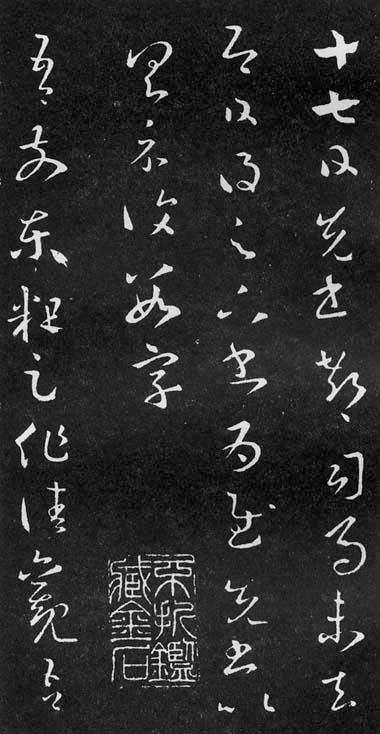 十七日先書郗司馬未去
即日得足下書為慰先書以
具示復數字
鑑藏金石
吾前東粗足作佳觀吾